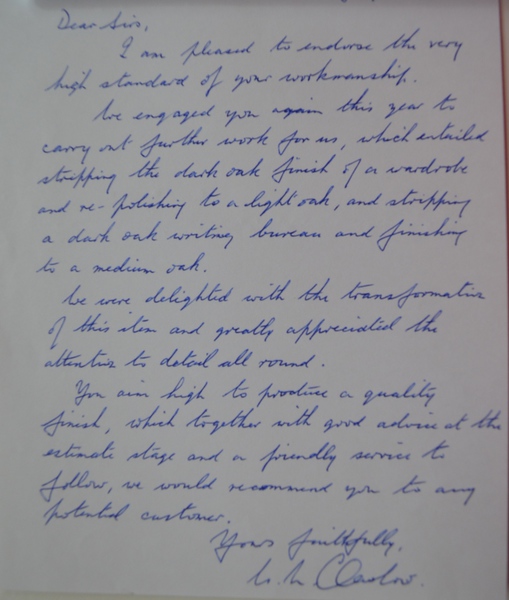 Dear Sirs,
I am pleased to endorse the very
high standard of your workmanship.
We engaged you again this year to
carry out further work for us, which entailed
stripping the dark oak finish of a wardrobe
and re-polishing to a light oak, and stripping
a dark oak writing bureau and finishing
to a medium oak.
We were delighted with the transformation
of this item and greatly appreciated the
attention to detail all round.
You aim high to produce a quality
finish, which together with good advice at the
estimate stage and a friendly service to
follow, we would recommend you to any
potential customer.
Yours faithfully,